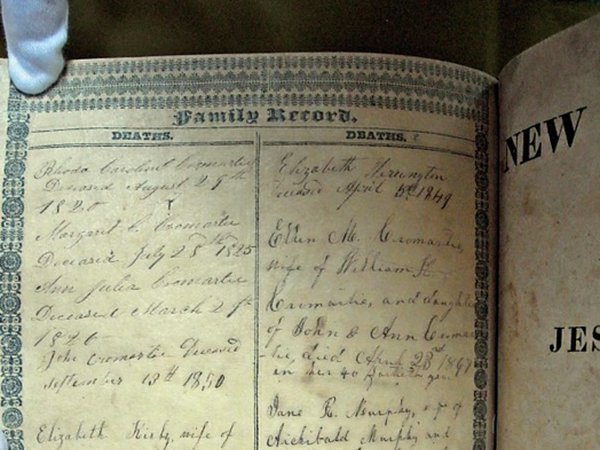 Family Record.
DEATHS.
Rhoda Caroline Cromartie
Deceased August 29th
1820
Margaret C. Cromartie
Deceased July 25th 1825
Ann Julia Cromartie
Deceased March 29th
1826
John Cromartie Deceased
September 13th 1850
Elizabeth Kirby, wife of
DEATHS.
Elizabeth
Deceased April 5th 1849
Ellen M. Cromartie,
wife of William K
Cromartie, and daughter
of John & Ann Cromar
-tie, died April 23rd 1867
in her 40 year
Jane R. Murphy, of
Archibald Murphy and
NEW
JES